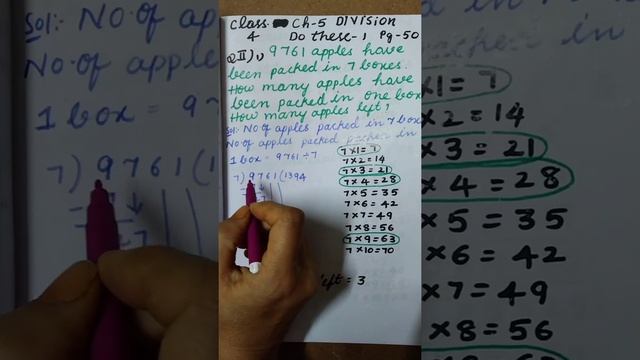 Class Ch-5 DIVISION
4 Do these-1 Pg-50
Q.II) 1) 9761 apples have
been packed in 7 boxes.
How many apples have
been packed in one box
How many apples left?
Sol:- No of apples packed in 7 box
No of apples packed in
1 box = 9761 ÷ 7
7) 9761 (1394
7×1=7
7×2=14
7×3=21
7×4=28
7×5=35
7×6=42
7×7=49
7×8=56
7×9=63
7×10=70
left = 3